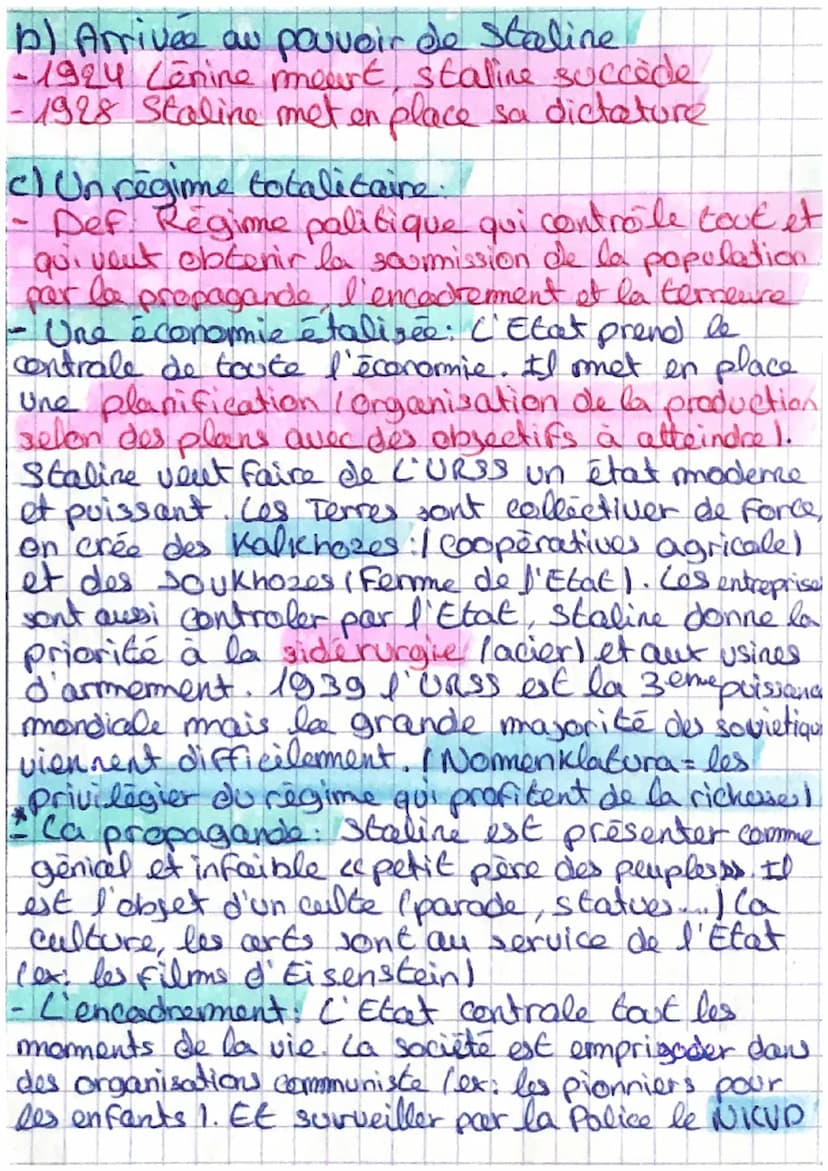 b) Arrivée au pouvoir de Staline
- 1924 Lénine meurt, staline succède
- 1928 Staline met en place sa dictature
c) Un régime totalitaire.
- Def: Régime politique qui contrôle tout et
qui veut obtenir la soumission de la population
par la propagande, l'encadrement et la terreure
- Une économie étalisée: L'Etat prend le
contrale de toute l'économie. Il met en place
une planification (organisation de la production
selon des plans avec des objectifs à atteindre).
Staline veut faire de L'URSS un état moderne
et puissant. Les Terres sont colléctiver de force,
on crée des Kalkhozes: (coopératives agricale)
et des Soukhozes (Ferme de l'Etat). Les entreprise
sont aussi controler par l'Etat, Staline donne la
priorité à la sidérurgie (acier) et aux usines
d'armement. 1939 l'URSS est la 3eme puissanc
mondiale mais la grande majorité des sovietiqu
viennent difficilement. (Nomenklatura = les
privilégier du régime qui profitent de la richesse)
*
- La propagande: Staline est présenter comme
génial et infaible «petit père des peuples». Il
est l'objet d'un culte (parade, statues...) La
culture, les arts sont au service de l'Etat
(ex: les films d'Eisenstein)
- L'encadrement: L'Etat contrale tout les
moments de la vie. La société est emprigoder dans
des organisations communiste (ex: les pionniers pour
les enfants). Et surveiller par la Police le NKVD